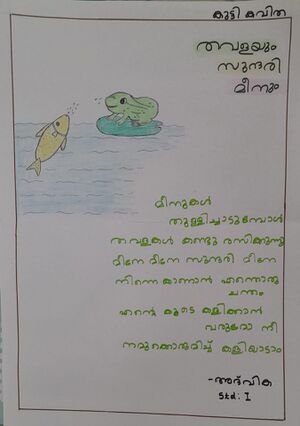 കുട്ടി കവിത
തവളയും
സുന്ദരി
മീനും
മീനുകൾ
തുള്ളിച്ചാടുമ്പോൾ
തവളകൾ കണ്ടു രസിക്കുന്നു
മീനേ മീനേ സുന്ദരി മീനേ
നിന്നെ കാണാൻ എന്തൊരു
ചന്തം
എന്റെ കൂടെ കളിക്കാൻ
വരുമോ നീ
നമുക്കൊരുമിച്ച് കളിയാടാം
-അദ്വിക
Std: I